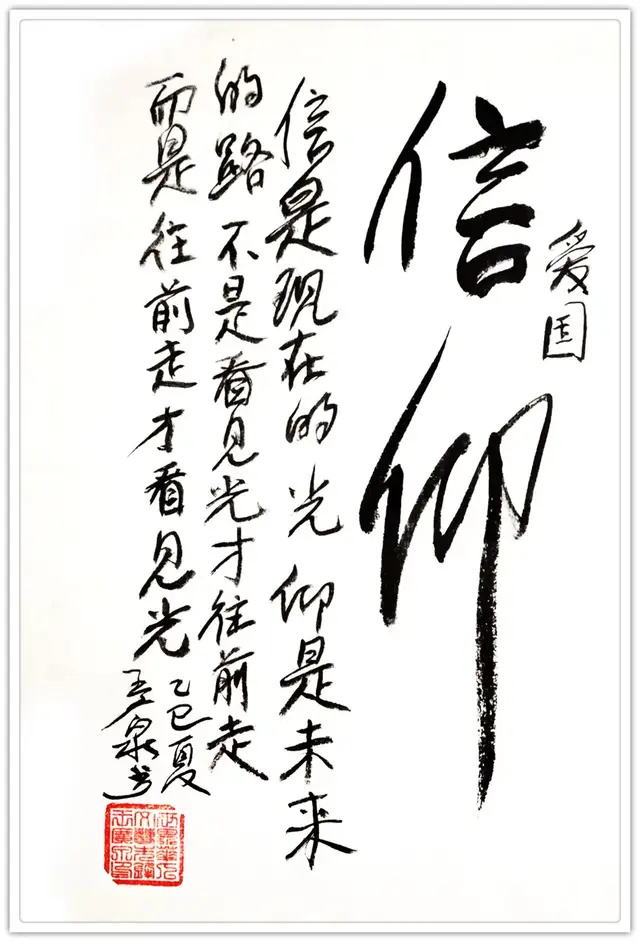 爱国
信仰
信是现在的光 仰是未来
的路 不是看见光才往前走
而是往前走才看见光
乙巳夏
泉书